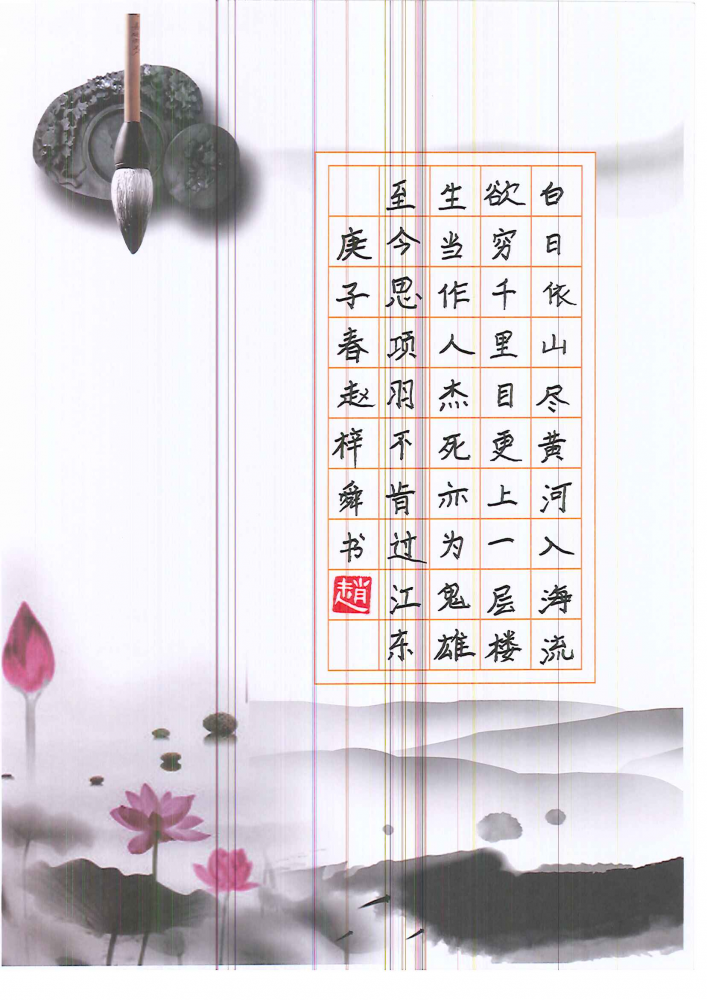 白日依山尽黄河入海流
欲穷千里目更上一层楼
生当作人杰死亦为鬼雄
至今思项羽不肯过江东
庚子春赵梓舜书
趙